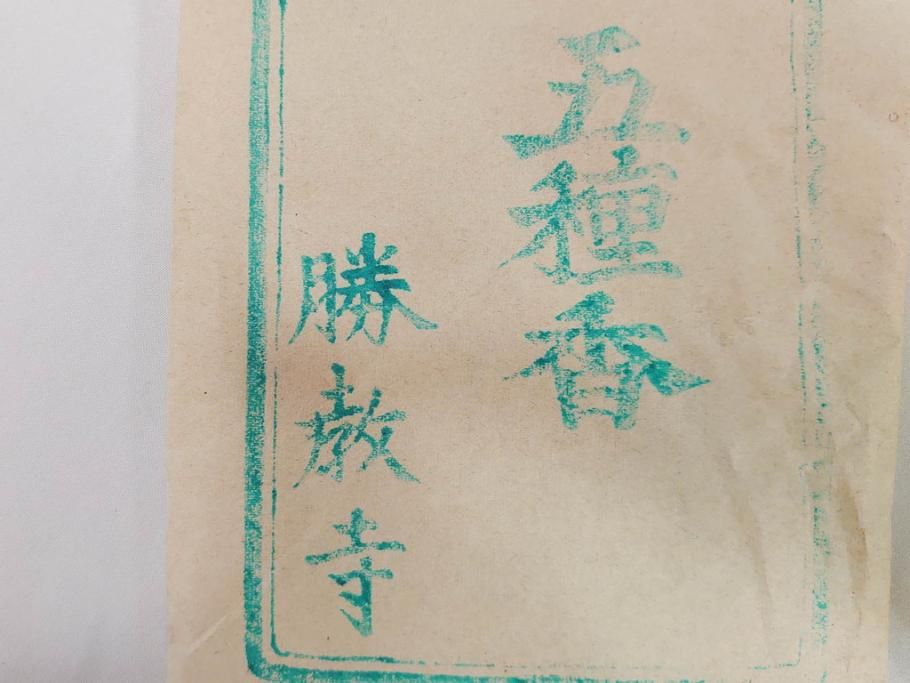 五種香
勝教寺